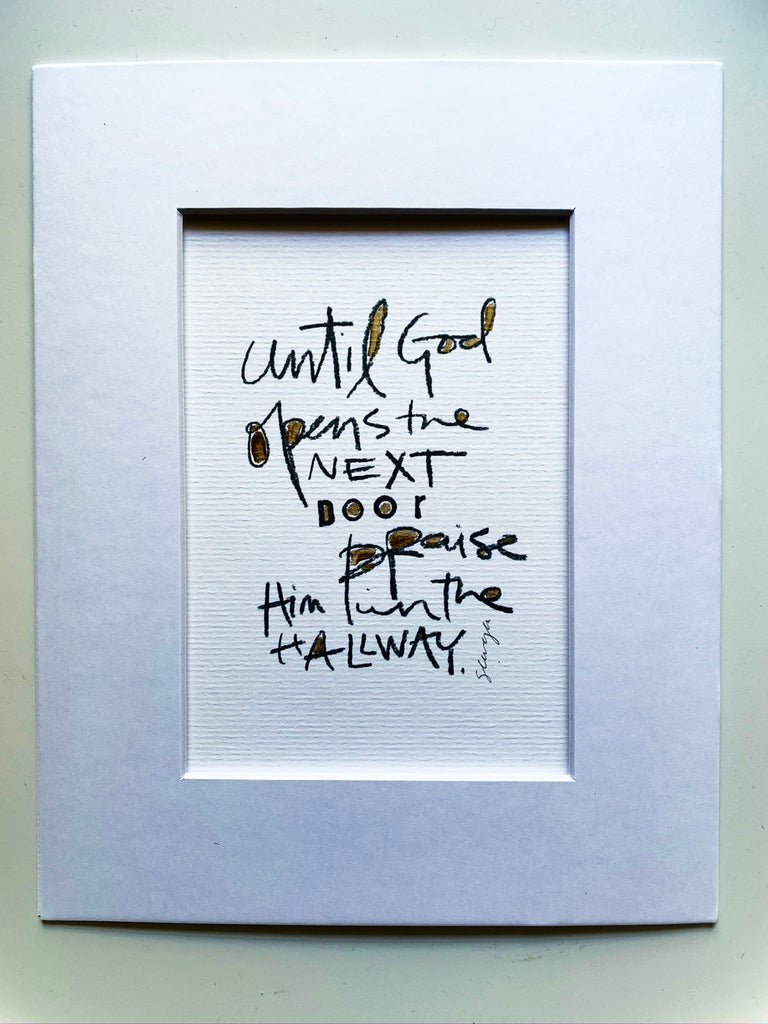 until God
opens the
NEXT
DOOr
praise
Him in the
HALLWAY.